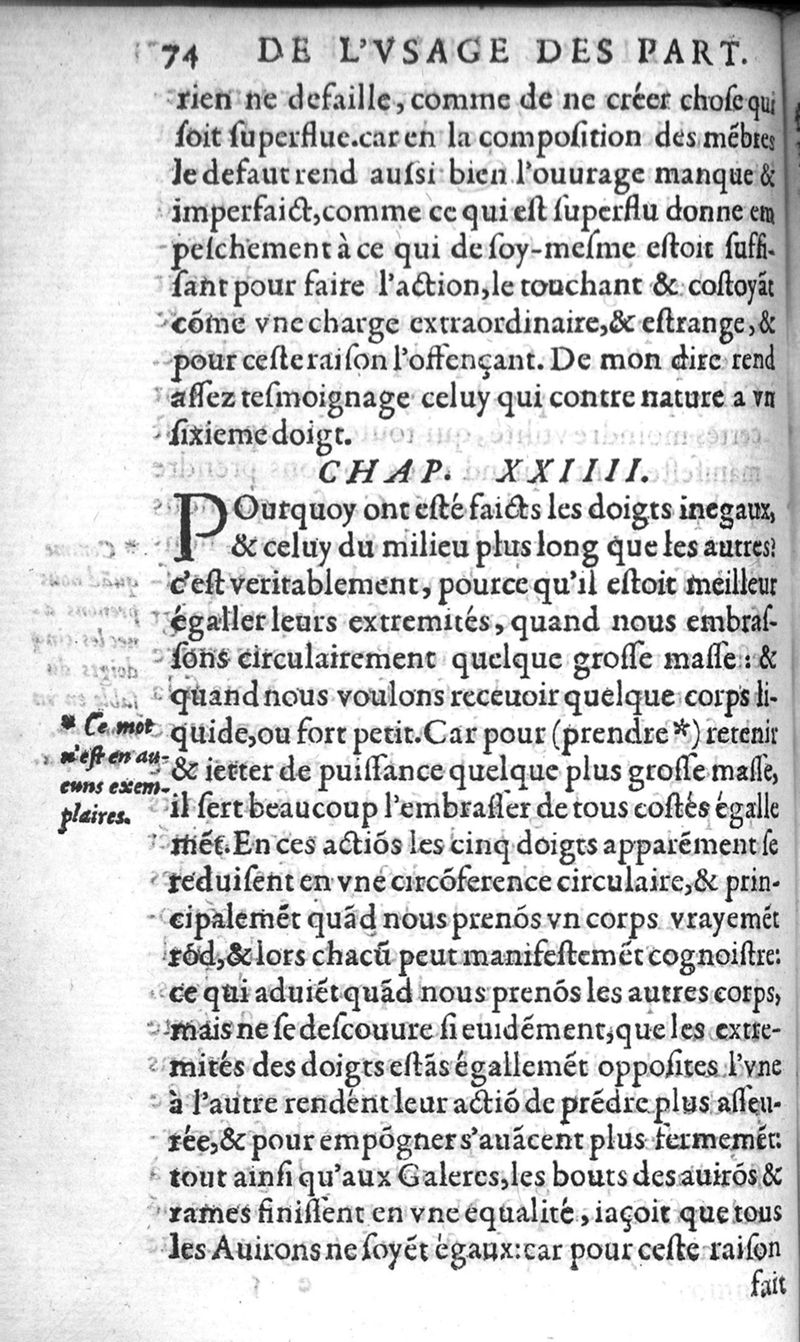 74 DE L'VSAGE DES PART.
rien ne defaille, comme de ne créer choſe qui
ſoit ſuperflue.car en la compoſition des mẽbres
le defaut rend auſsi bien l'ouurage manque &
imperfaict,comme ce qui eſt ſuperflu donne em
peſchement à ce qui de ſoy-meſme eſtoit ſuffi-
ſant pour faire l'action,le touchant & coſtoyãt
cõme vne charge extraordinaire,& eſtrange,&
pour ceſte raiſon l'offençant. De mon dire rend
aſſez teſmoignage celuy qui contre nature a vn
ſixieme doigt.
CHAP. XXIIII.
POurquoy ont eſté faicts les doigts inegaux,
& celuy du milieu plus long que les autres?
c'eſt veritablement, pource qu'il eſtoit meilleur
égaller leurs extremités, quand nous embraſ-
ſons circulairement quelque groſſe maſſe : &
quand nous voulons receuoir quelque corps li-
quide,ou fort petit.Car pour (prendre *) retenir
& ietter de puiſſance quelque plus groſſe maſſe,
il ſert beaucoup l'embraſſer de tous coſtés égalle
mẽt.En ces actiõs les cinq doigts apparẽment ſe
reduiſent en vne circõference circulaire,& prin-
cipalemẽt quãd nous prenõs vn corps vrayemẽt
rõd,& lors chacũ peut manifeſtemẽt cognoiſtre:
ce qui aduiẽt quãd nous prenõs les autres corps,
mais ne ſe deſcouure ſi euidẽment,que les extre-
mités des doigts eſtãs égallemẽt oppoſites l'vne
à l'autre rendent leur actiõ de prẽdre plus aſſeu-
rée,& pour empõgner s'auãcent plus fermemẽt:
tout ainſi qu'aux Galeres,les bouts des auirõs &
rames finiſſent en vne equalité, iaçoit que tous
les Auirons ne ſoyẽt égaux:car pour ceſte raiſon
fait
* Ce mot
n'eſt en au-
cuns exem-
plaires.